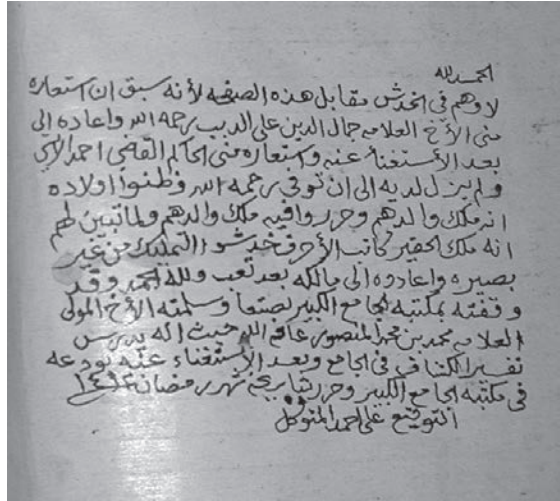 الحمد لله
لا وهم في الخدش مقابل هذه الصفحه لأنه سبق ان استعاره
مني الأخ العلامه جمال الدين علي الديب رحمه الله واعاده إلي
بعد الأستغناء عنه واستعاره مني الحاكم القاضي احمد
ولم يزل لديه إلى ان توفي رحمه الله وظنوا اولاده
انه ملك والدهم وحرروا فيه ملك والدهم ولما تبين لهم
انه ملك الحقير كاتب الأحرف خدشوا التمليك من غير
بصيره واعادوه إلى مالكه بعد تعب ولله الحمد وقد
وقفته بمكتبه الجامع الكبير بصنعا وسلمته الأخ المولى
العلامه محمد بن محمد المنصور عافاه الله حيث انه يدرس
تفسير الكشاف في الجامع وبعد الأستغناء عنه يودعه
في مكتبه الجامع الكبير وحرر بتاريخه شهر رمضان
التوقيع علي احمد المتوكل